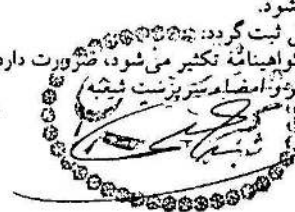 شود.
ثبت گردد:
گواهینامه تکثیر می‌شود، ضرورت دارد
و امضاء سرپرست شعبه